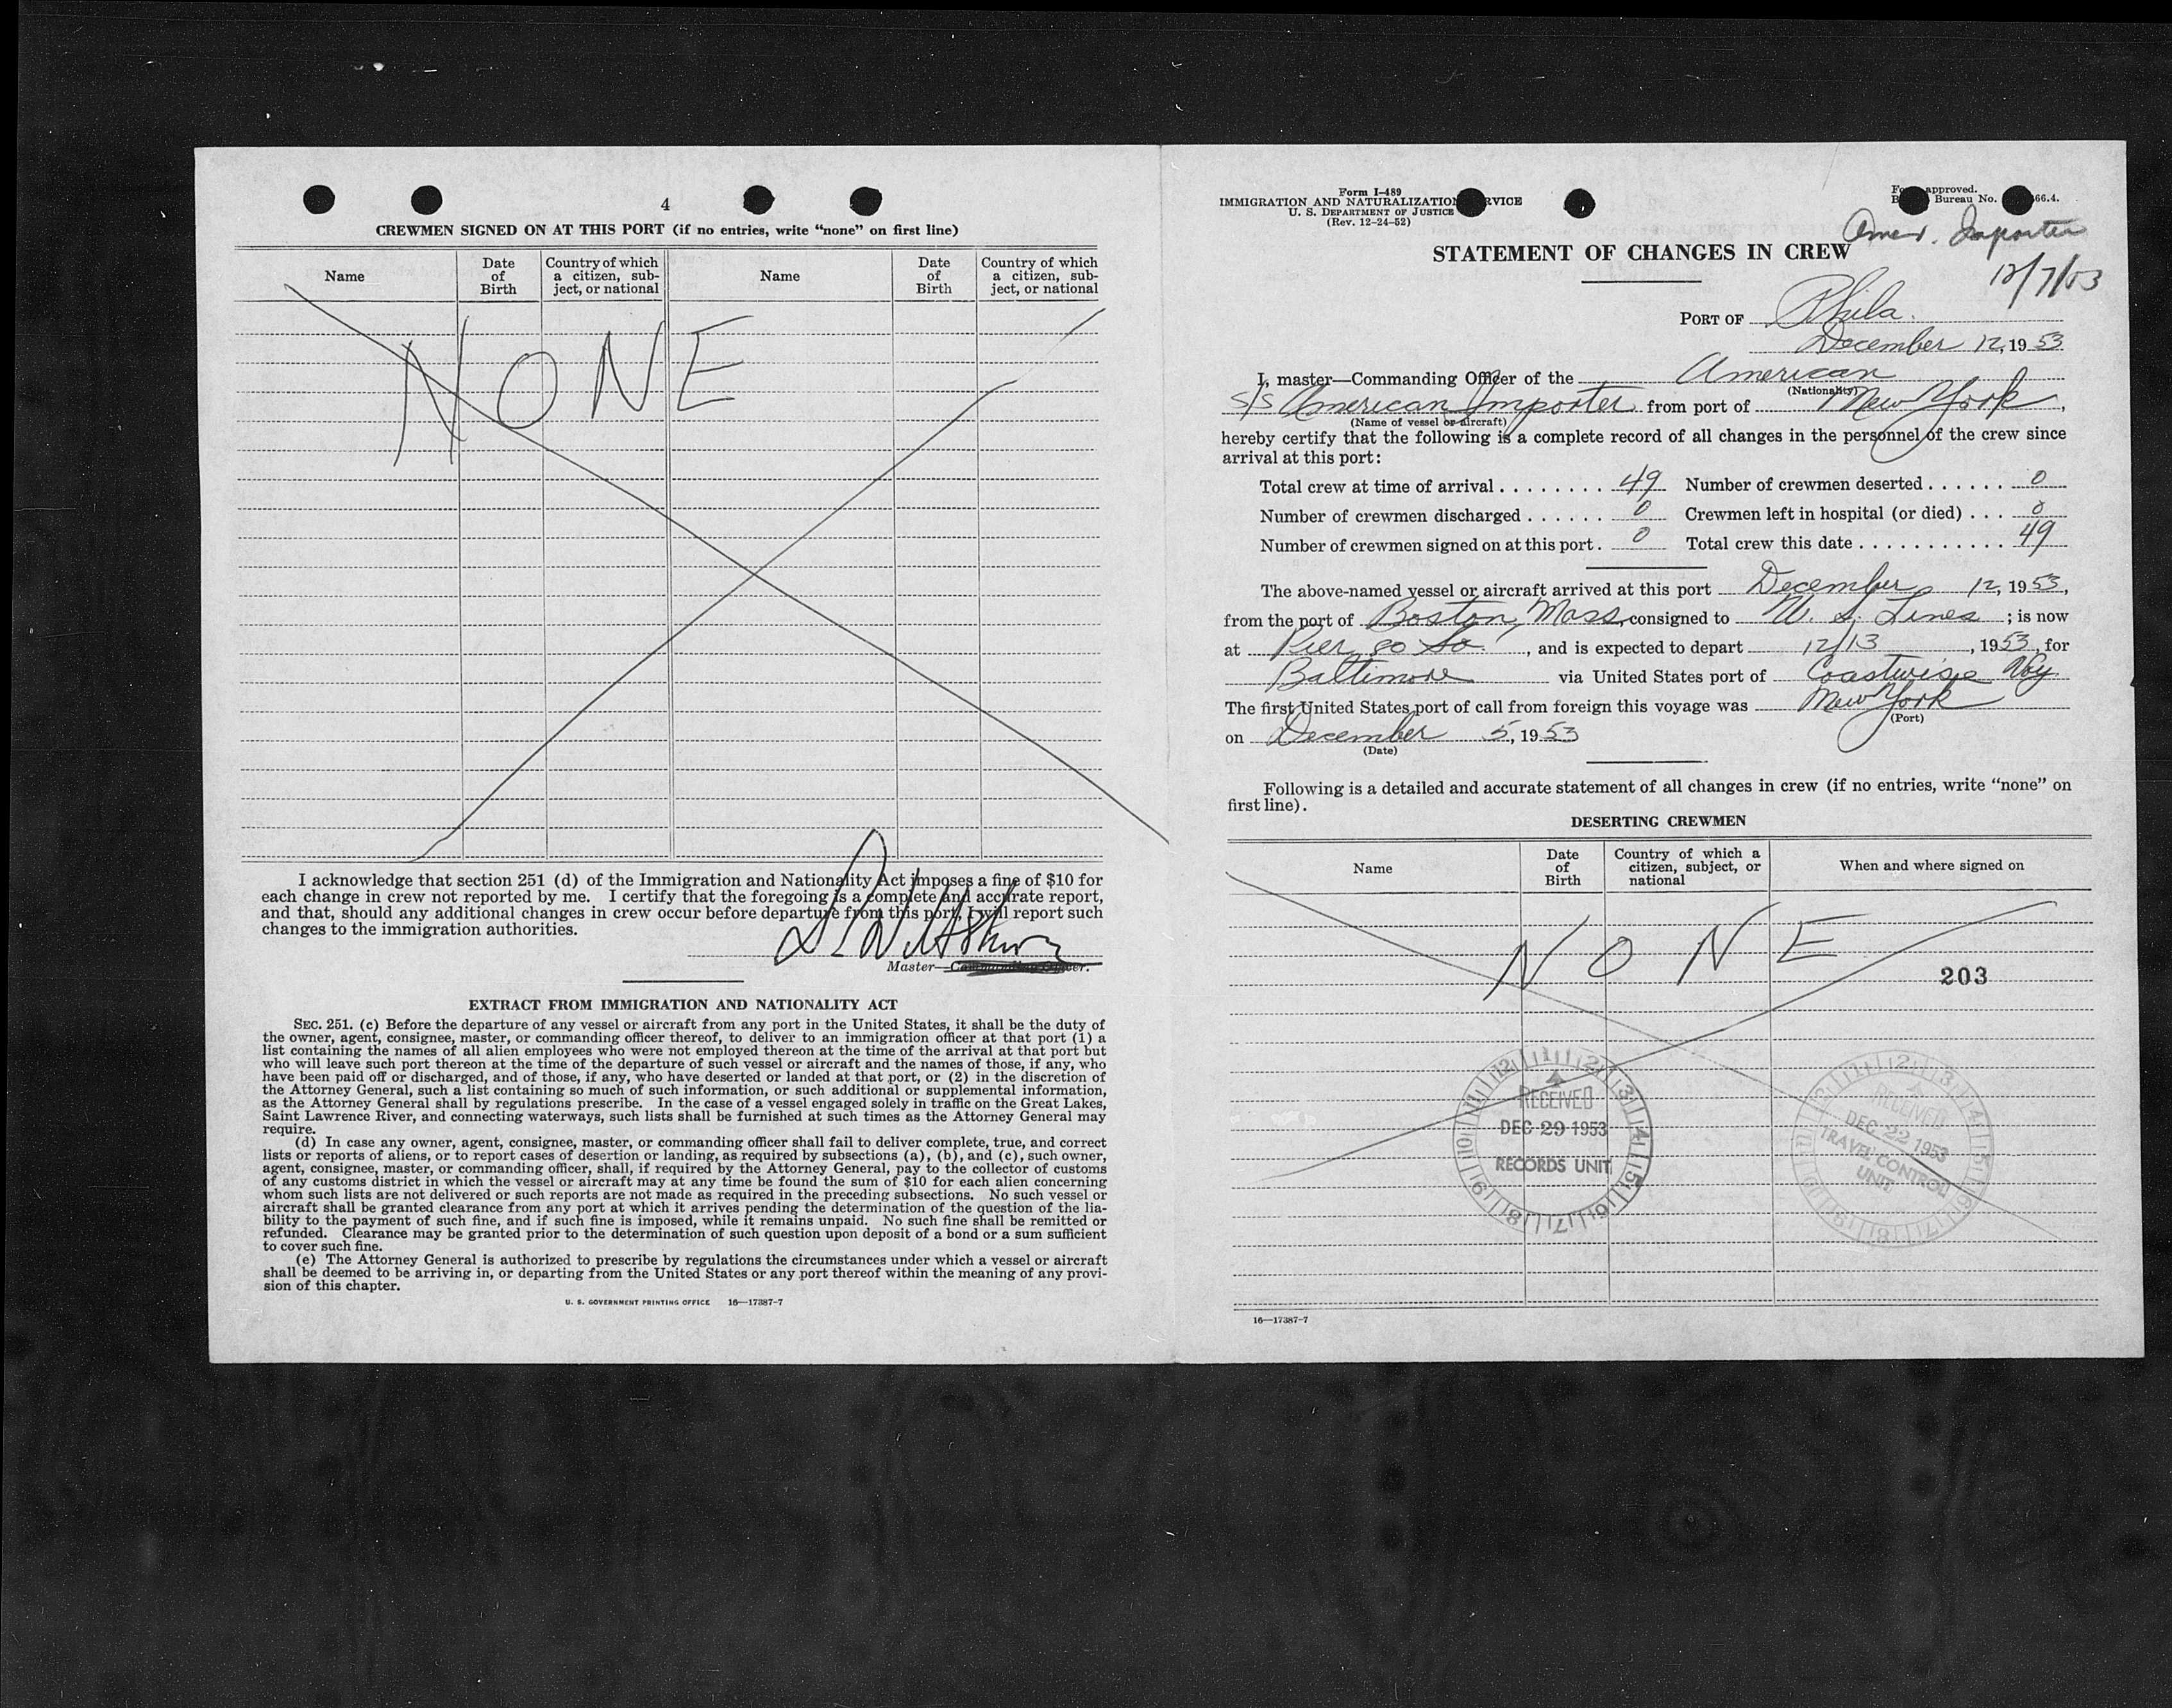 4
CREWMEN SIGNED ON AT THIS PORT (if no entries, write “none” on first line)
Name
Date of Birth
Country of which a citizen, subject, or national
Name
Date of Birth
Country of which a citizen, subject, or national
NONE
I acknowledge that section 251 (d) of the Immigration and Nationality Act imposes a fine of $10 for
each change in crew not reported by me. I certify that the foregoing is a complete and accurate report,
and that, should any additional changes in crew occur before departure from this port, I will report such
changes to the immigration authorities.
Master—Commanding Officer.
EXTRACT FROM IMMIGRATION AND NATIONALITY ACT
SEC. 251. (c) Before the departure of any vessel or aircraft from any port in the United States, it shall be the duty of
the owner, agent, consignee, master, or commanding officer thereof, to deliver to an immigration officer at that port (1) a
list containing the names of all alien employees who were not employed thereon at the time of the arrival at that port but
who will leave such port thereon at the time of the departure of such vessel or aircraft and the names of those, if any, who
have been paid off or discharged, and of those, if any, who have deserted or landed at that port, or (2) in the discretion of
the Attorney General, such a list containing so much of such information, or such additional or supplemental information,
as the Attorney General shall by regulations prescribe. In the case of a vessel engaged solely in traffic on the Great Lakes,
Saint Lawrence River, and connecting waterways, such lists shall be furnished at such times as the Attorney General may
require.
(d) In case any owner, agent, consignee, master, or commanding officer shall fail to deliver complete, true, and correct
lists or reports of aliens, or to report cases of desertion or landing, as required by subsections (a), (b), and (c), such owner,
agent, consignee, master, or commanding officer, shall, if required by the Attorney General, pay to the collector of customs
of any customs district in which the vessel or aircraft may at any time be found the sum of $10 for each alien concerning
whom such lists are not delivered or such reports are not made as required in the preceding subsections. No such vessel or
aircraft shall be granted clearance from any port at which it arrives pending the determination of the question of the lia-
bility to the payment of such fine, and if such fine is imposed, while it remains unpaid. No such fine shall be remitted or
refunded. Clearance may be granted prior to the determination of such question upon deposit of a bond or a sum sufficient
to cover such fine.
(e) The Attorney General is authorized to prescribe by regulations the circumstances under which a vessel or aircraft
shall be deemed to be arriving in, or departing from the United States or any port thereof within the meaning of any provi-
sion of this chapter.
U. S. GOVERNMENT PRINTING OFFICE 16—17387-7
Form I-489
IMMIGRATION AND NATURALIZATION SERVICE
U. S. DEPARTMENT OF JUSTICE
(Rev. 12-24-52)
approved.
Bureau No. 66.4.
Amer. Importer
12/7/53
STATEMENT OF CHANGES IN CREW
PORT OF Phila.
December 12, 1953
I, master—Commanding Officer of the American
(Nationality)
S/S American Importer from port of New York,
(Name of vessel or aircraft)
hereby certify that the following is a complete record of all changes in the personnel of the crew since
arrival at this port:
Total crew at time of arrival 49 Number of crewmen deserted 0
Number of crewmen discharged 0 Crewmen left in hospital (or died) 0
Number of crewmen signed on at this port. 0 Total crew this date 49
The above-named vessel or aircraft arrived at this port December 12, 1953,
from the port of Boston, Mass, consigned to U. S. Lines; is now
at Pier 80 So., and is expected to depart 12/13, 1953, for
Baltimore via United States port of Coastwise Voy
The first United States port of call from foreign this voyage was New York
(Port)
on December 5, 1953
(Date)
Following is a detailed and accurate statement of all changes in crew (if no entries, write “none” on
first line).
DESERTING CREWMEN
Name
Date of Birth
Country of which a citizen, subject, or national
When and where signed on
NONE
203
RECEIVED
DEC 29 1953
RECORDS UNIT
RECEIVED
DEC 22 1953
TRAVEL CONTROL
UNIT
16—17387-7